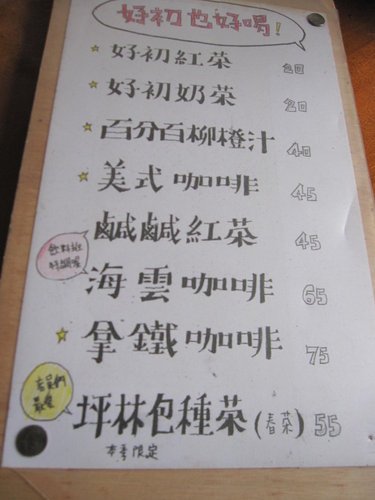 好初也好喝!
好初紅茶 20
好初奶茶 20
百分百柳橙汁 40
美式咖啡 45
鹹鹹紅茶 45
海雲咖啡 65
拿鐵咖啡 75
店員們
最愛
坪林包種茶(春茶) 55
本季限定